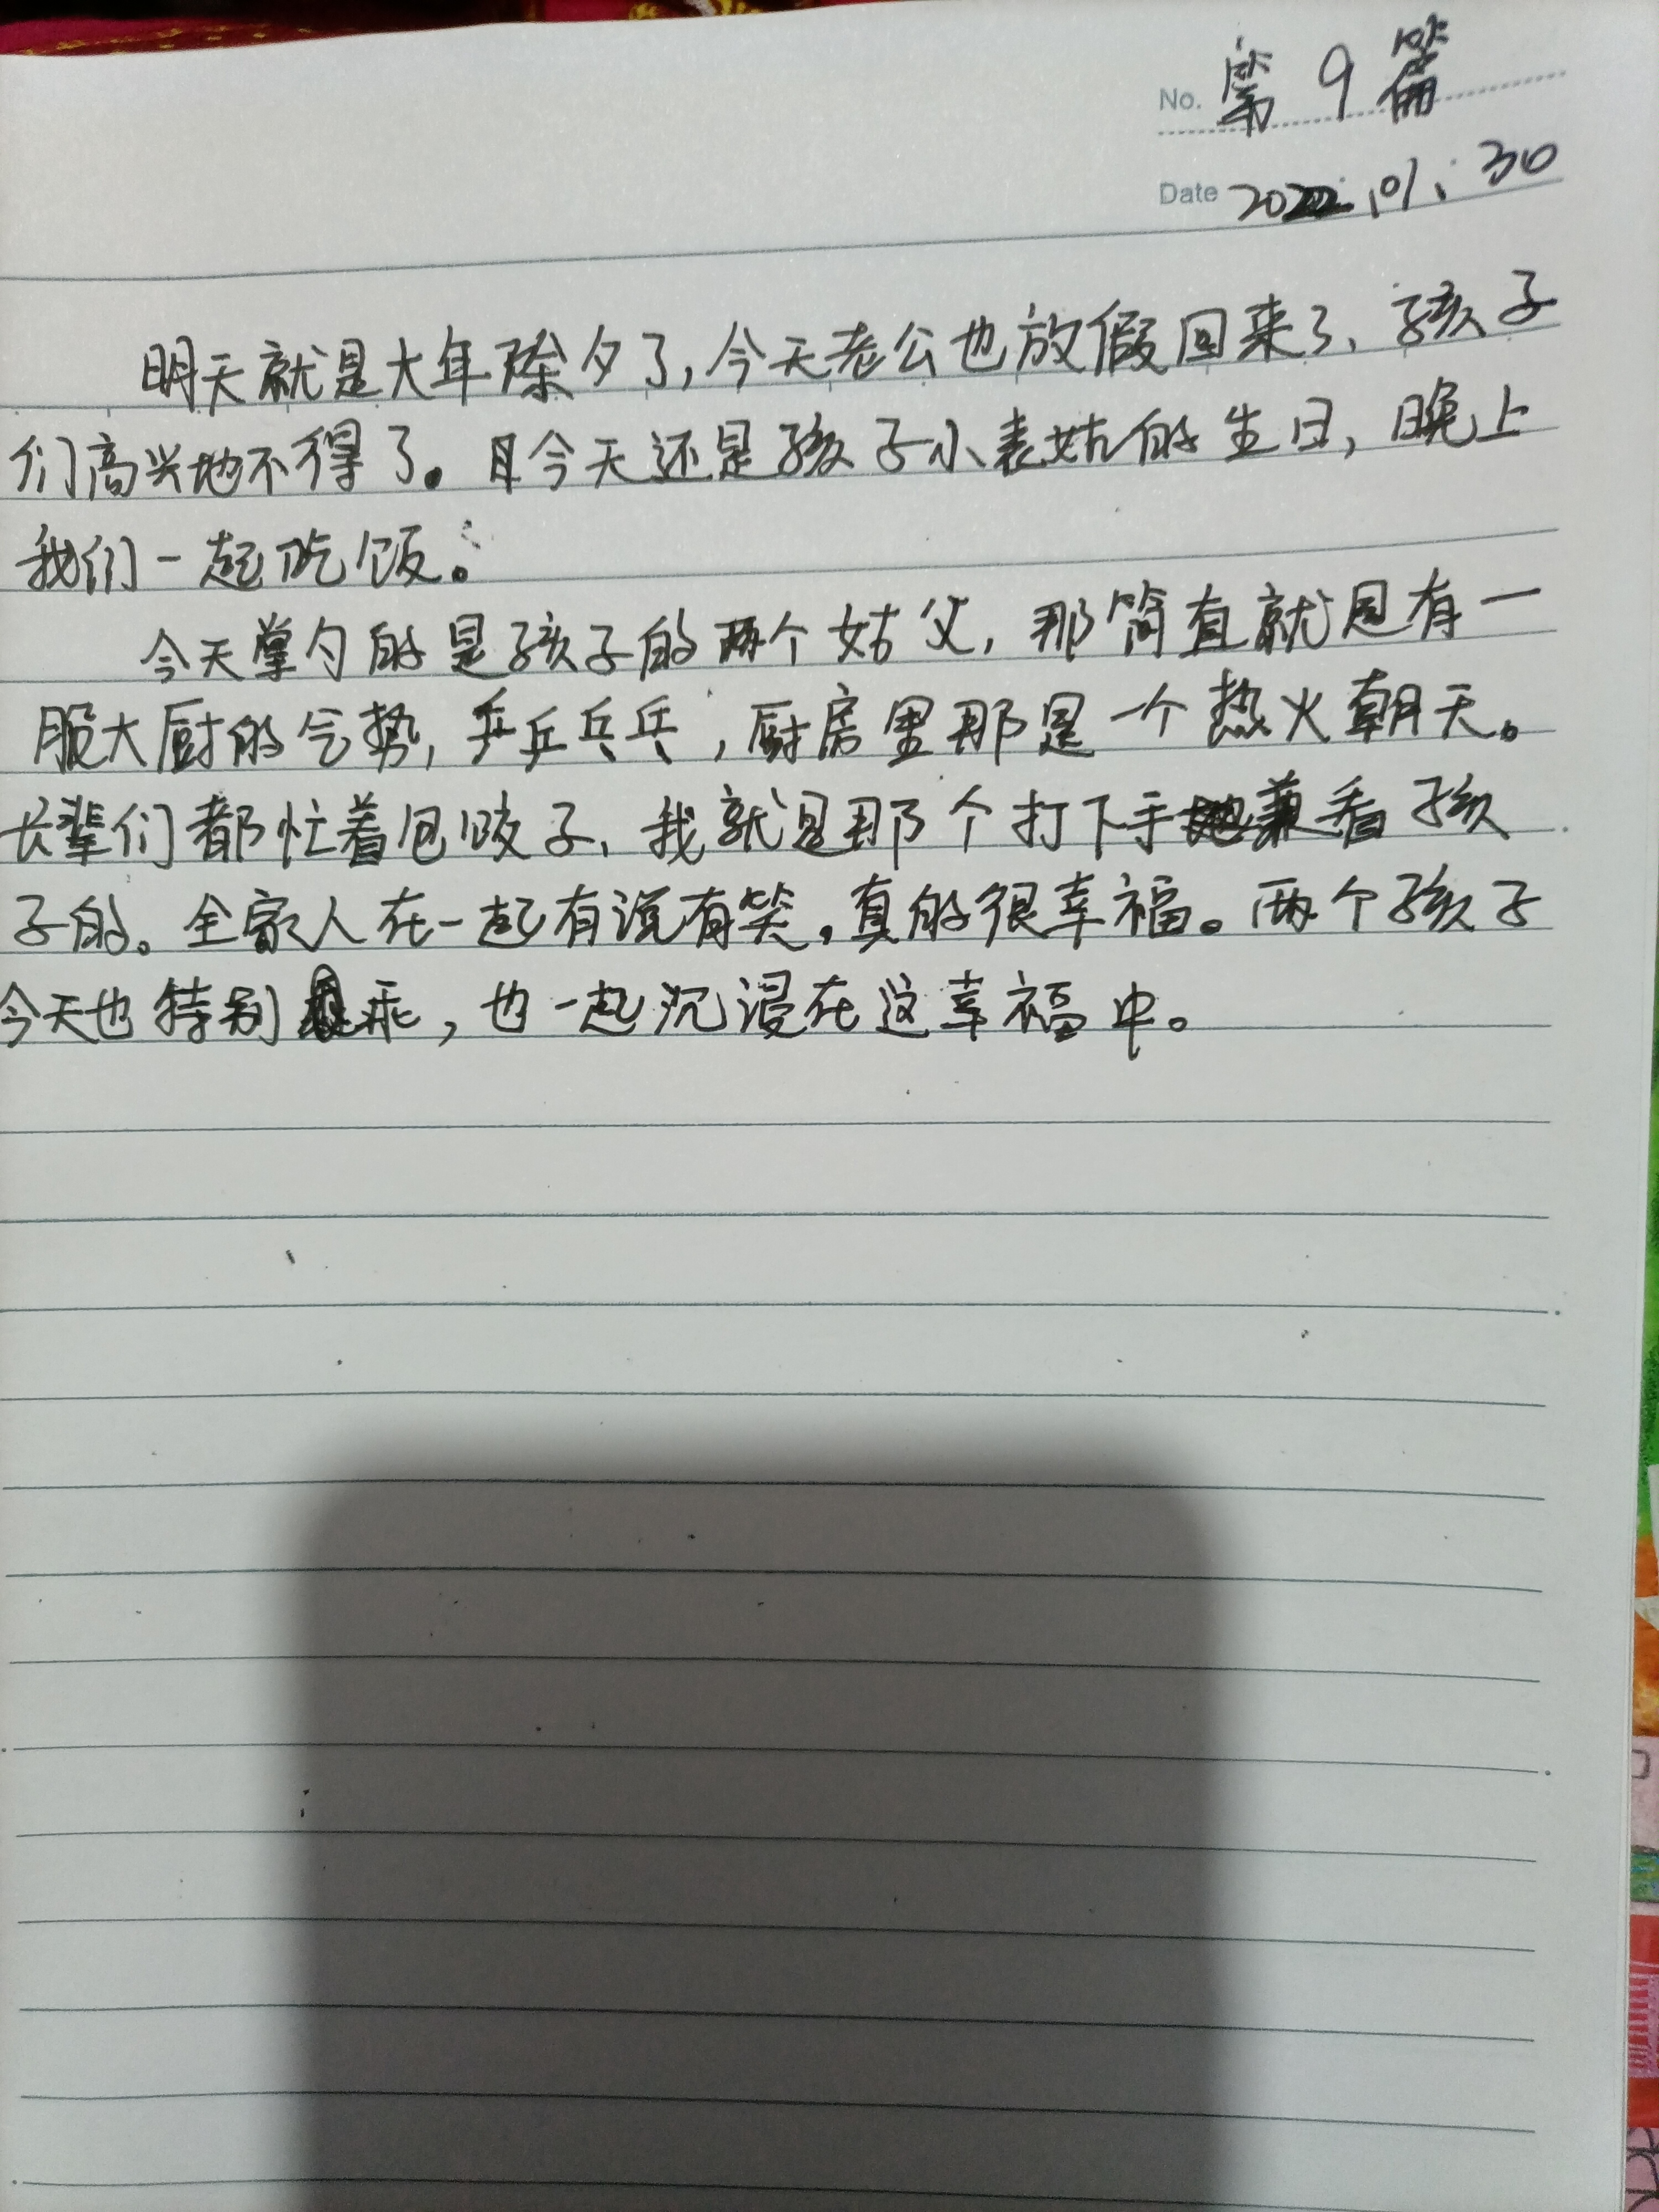 No. 第9篇
Date 2022.01.30
明天就是大年除夕了,今天老公也放假回来了、孩子
们高兴地不得了。且今天还是孩子小表姑的生日,晚上
我们一起吃饭。
今天掌勺的是孩子的两个姑父,那简直就是有一
股大厨的气势,乒乒乓乓,厨房里那是一个热火朝天。
长辈们都忙着包饺子、我就是那个打下手兼看孩
子的。全家人在一起有说有笑,真的很幸福。两个孩子
今天也特别乖,也一起沉浸在这幸福中。